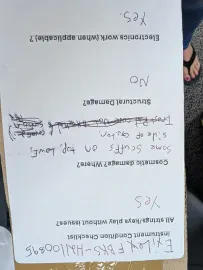 Exiley FBKS-HNI100895
Instrument Condition Checklist
All strings/keys play without issues?
YES
Cosmetic damage? Where?
Some scuffs on top, lower
side of guitar.
Structural Damage?
No
Electronics work (when applicable)?
Yes.